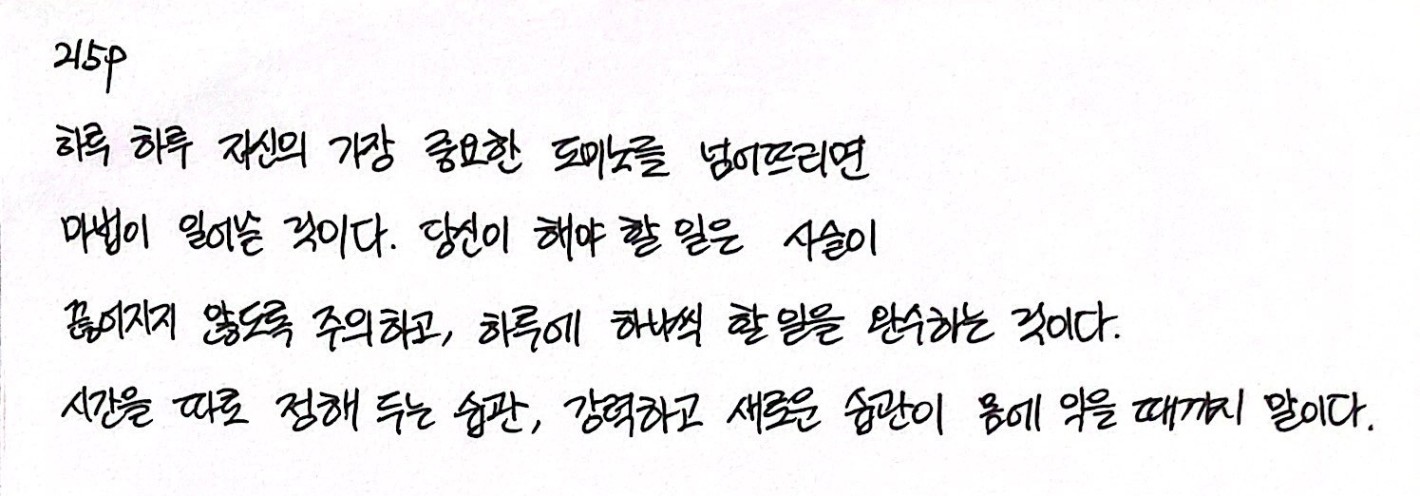 215p
하루 하루 자신의 가장 중요한 도미노를 넘어뜨리면
마법이 일어날 것이다. 당신이 해야 할 일은 사슬이
끊어지지 않도록 주의하고, 하루에 하나씩 할 일을 완수하는 것이다.
시간을 따로 정해 두는 습관, 강력하고 새로운 습관이 몸에 익을 때까지 말이다.